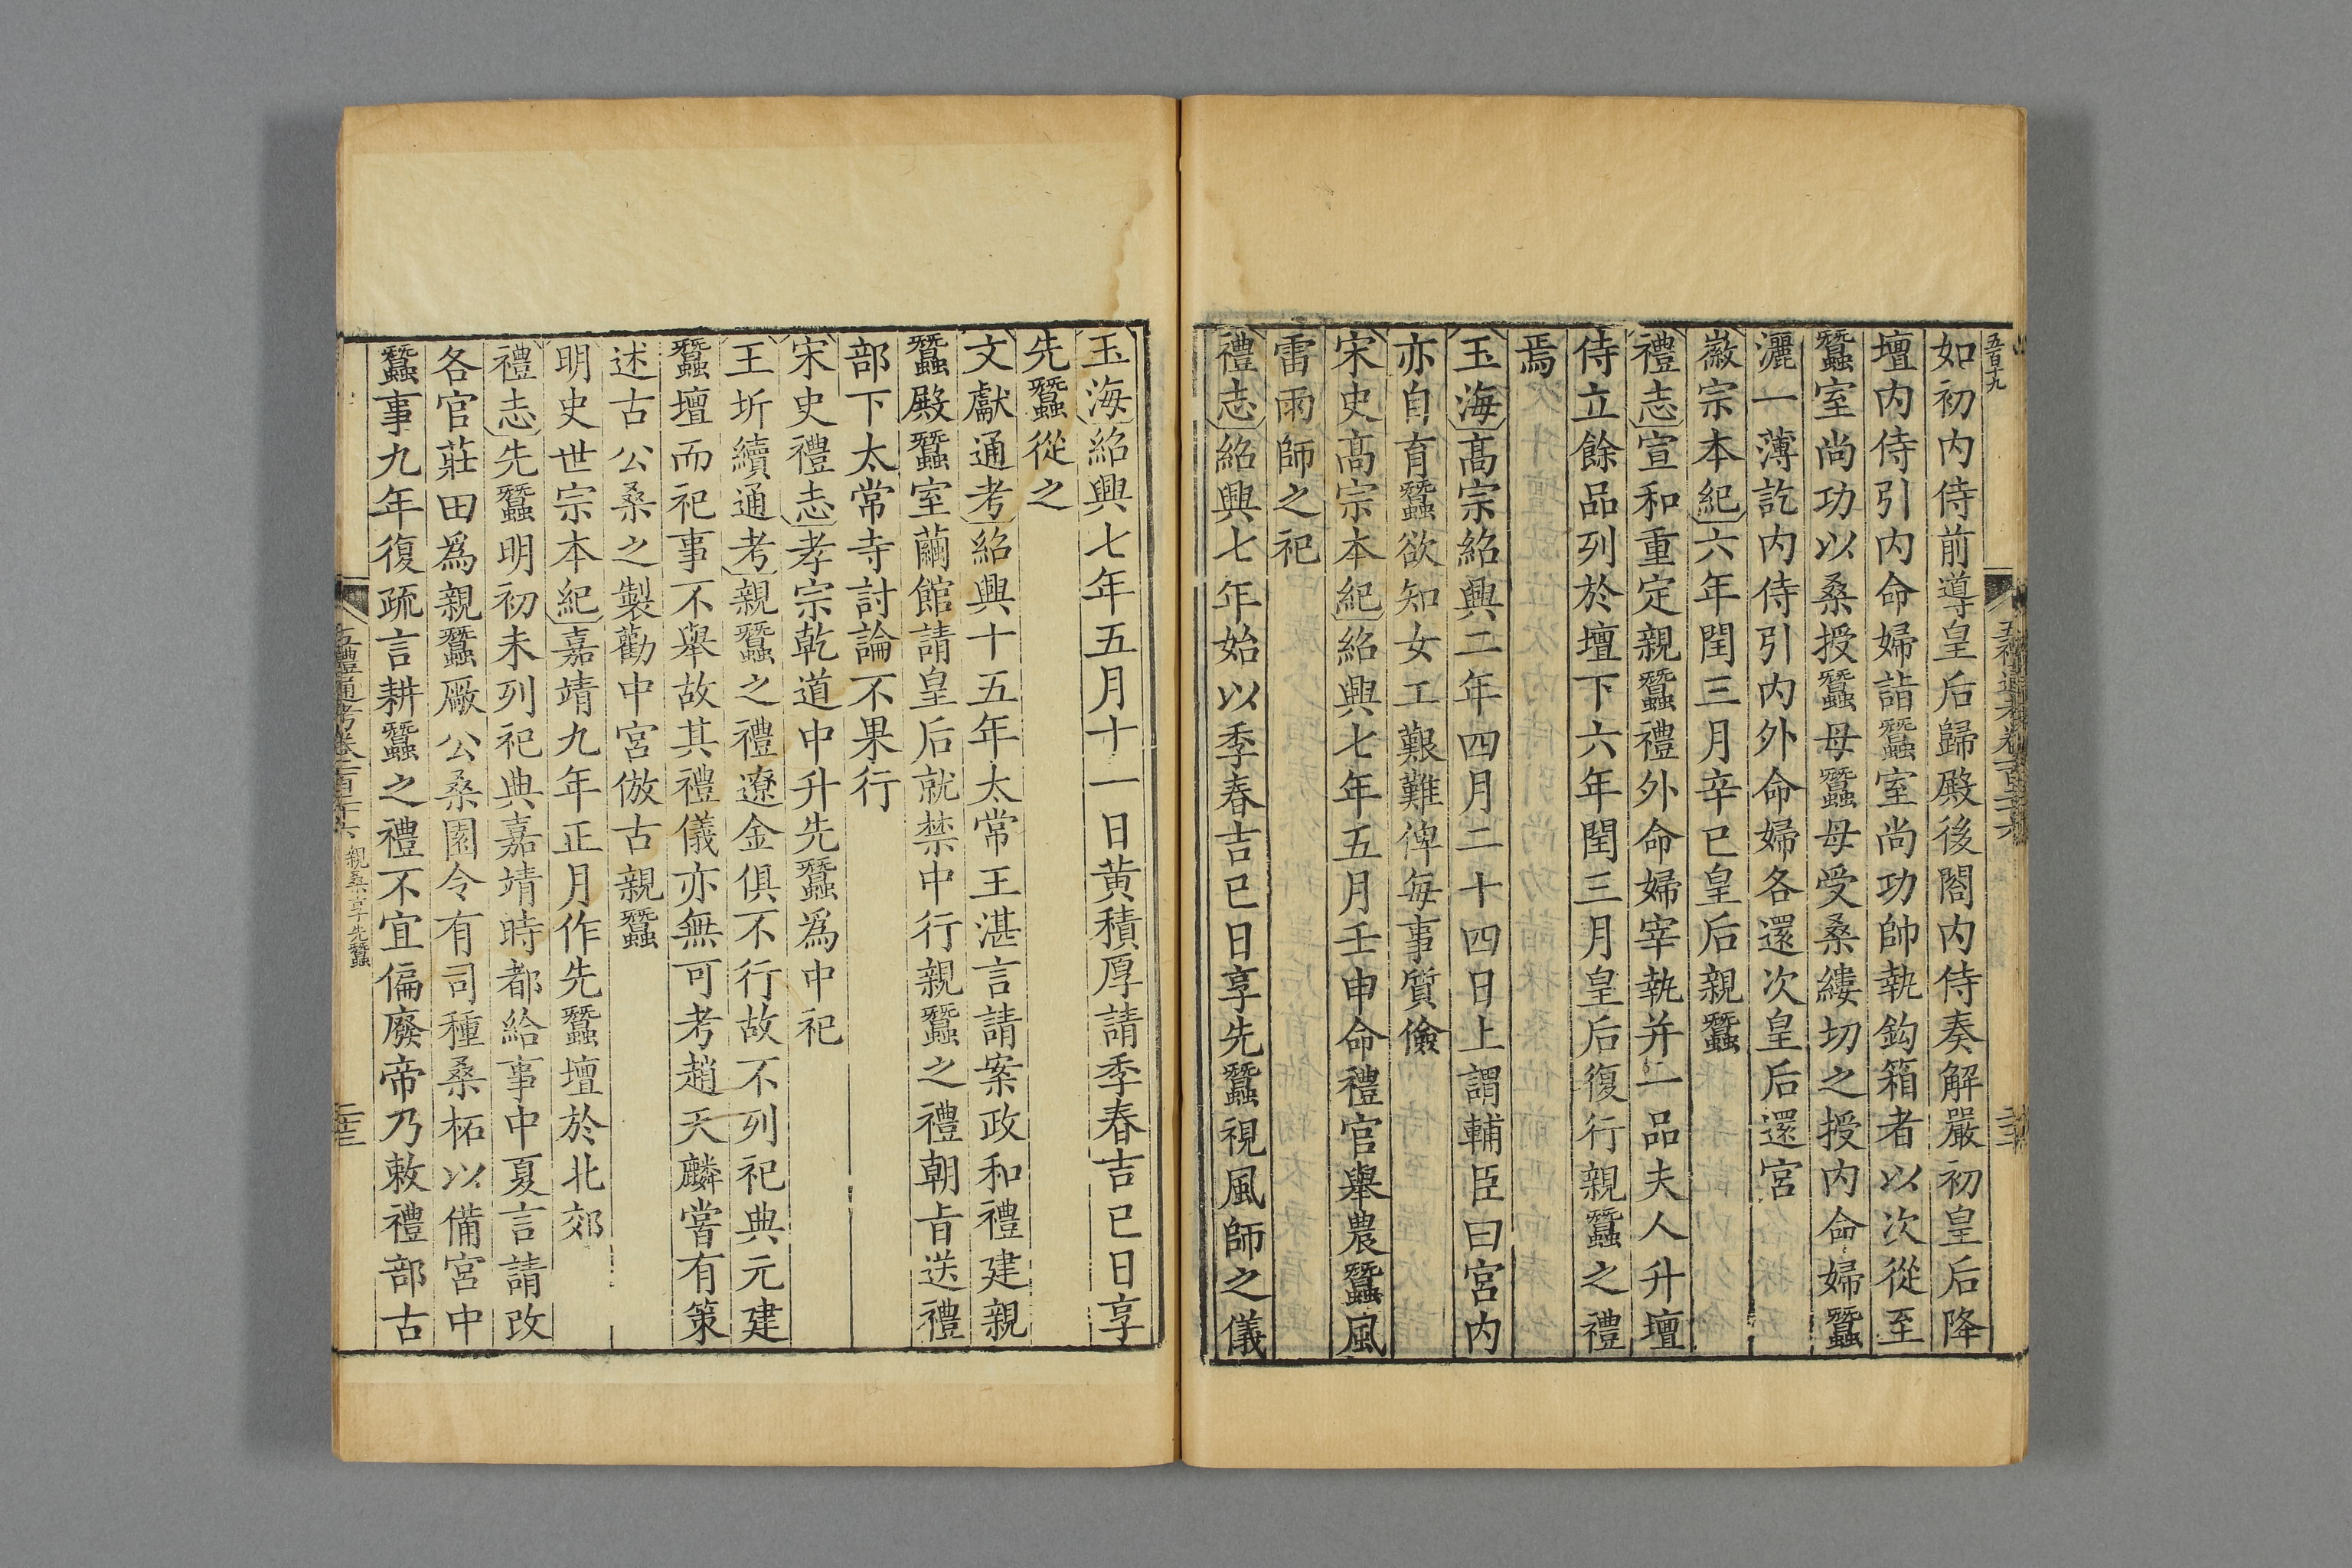 五百十九
如初内侍前導皇后歸殿後閤内侍奏解嚴初皇后降
壇内侍引内命婦詣蠶室尚功帥執鈎箱者以次從至
蠶室尚功以桑授蠶母蠶母受桑縷切之授内命婦蠶
灑一薄訖内侍引内外命婦各還次皇后還宮
徽宗本紀六年閏三月辛巳皇后親蠶
禮志宣和重定親蠶禮外命婦宰執并一品夫人升壇
侍立餘品列於壇下六年閏三月皇后復行親蠶之禮
焉
玉海髙宗紹興二年四月二十四日上謂輔臣曰宮内
亦自育蠶欲知女工艱難俾每事質儉
宋史髙宗本紀紹興七年五月壬申命禮官舉農蠶風
雷雨師之祀
禮志紹興七年始以季春吉巳日享先蠶視風師之儀
玉海紹興七年五月十一日黄積厚請季春吉巳日享
先蠶從之
文獻通考紹興十五年太常王湛言請案政和禮建親
蠶殿蠶室繭館請皇后就禁中行親蠶之禮朝㫖送禮
部下太常寺討論不果行
宋史禮志孝宗乾道中升先蠶爲中祀
王圻續通考親蠶之禮遼金俱不行故不列祀典元建
蠶壇而祀事不舉故其禮儀亦無可考趙天麟嘗有策
述古公桑之製勸中宮倣古親蠶
明史世宗本紀嘉靖九年正月作先蠶壇於北郊
禮志先蠶明初未列祀典嘉靖時都給事中夏言請改
各官莊田爲親蠶厰公桑園令有司種桑柘以備宮中
蠶事九年復疏言耕蠶之禮不宜偏廢帝乃敕禮部古
五禮通考卷一百二十六 親桑享先蠶 二十三